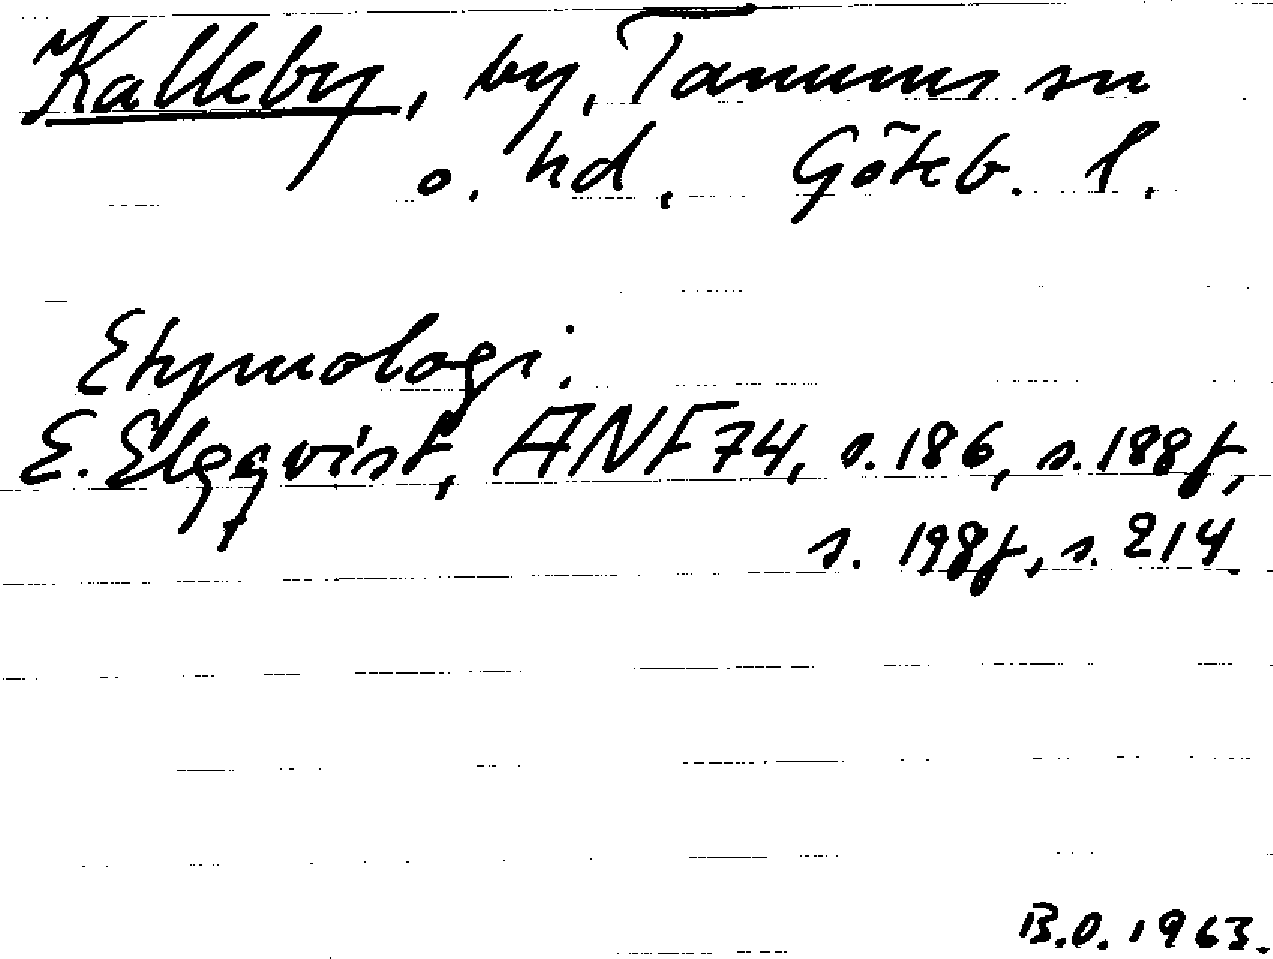 Kalleby, by, Tanums sn
o. hd. Göteb. l.
Etymologi.
E. Elgqvist, ANF 74, s. 186, s. 188f,
s. 198f, s. 214.
B.O. 1963.